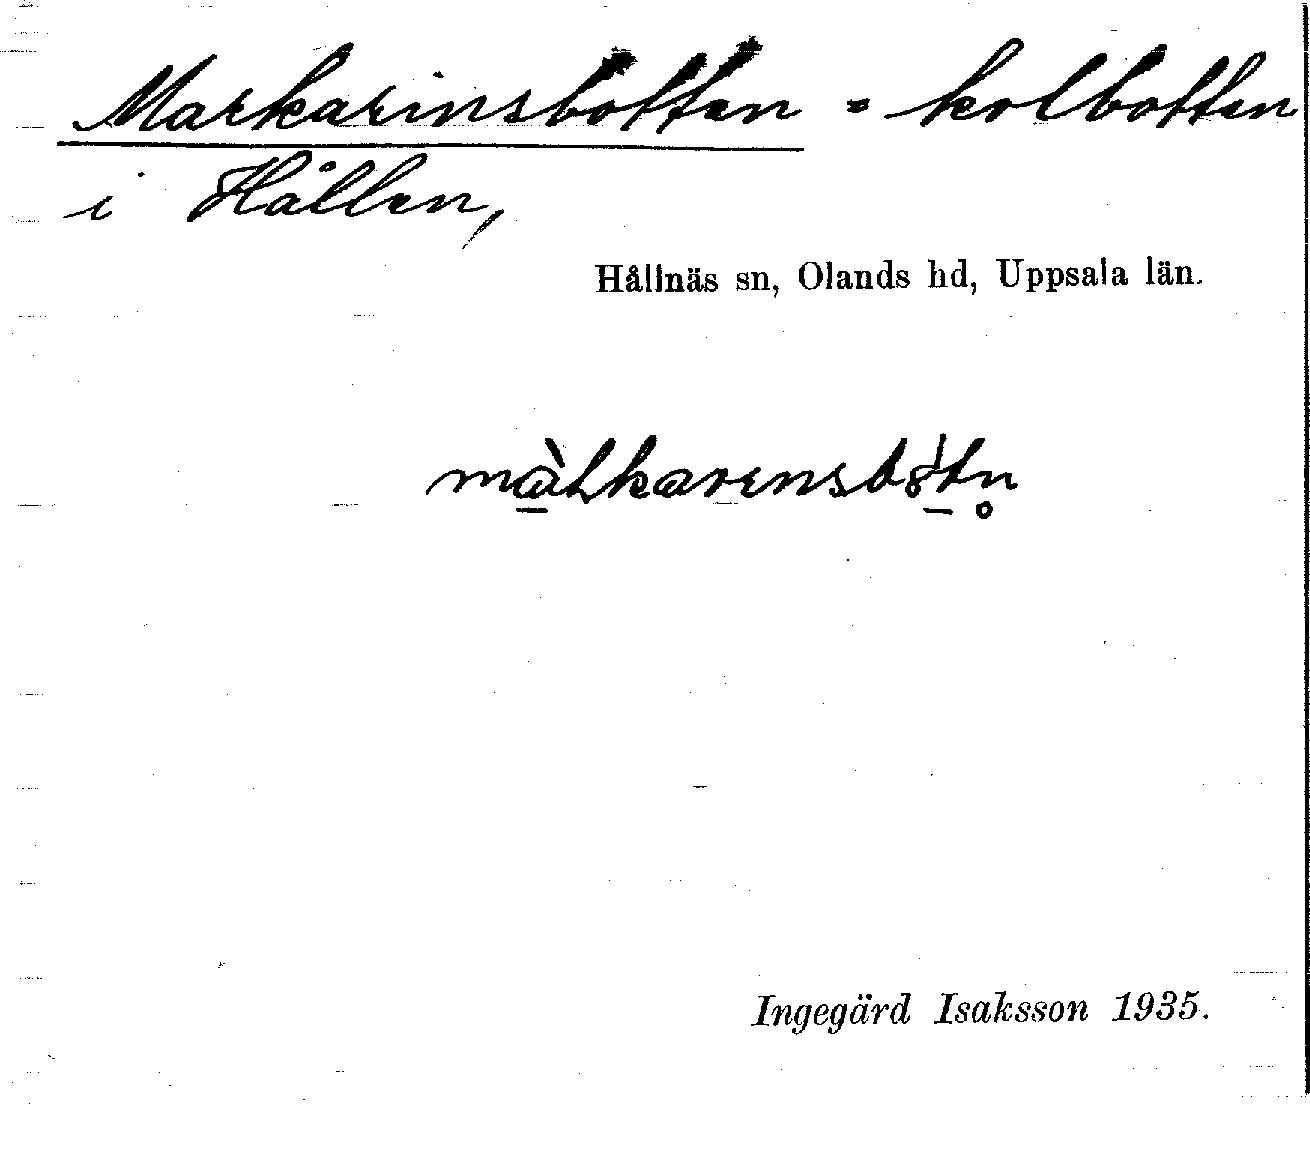 Markarinsbotten = kolbotten
i Hållen,
Hållnäs sn, Olands hd, Uppsala län.
Ingegärd Isaksson 1935.